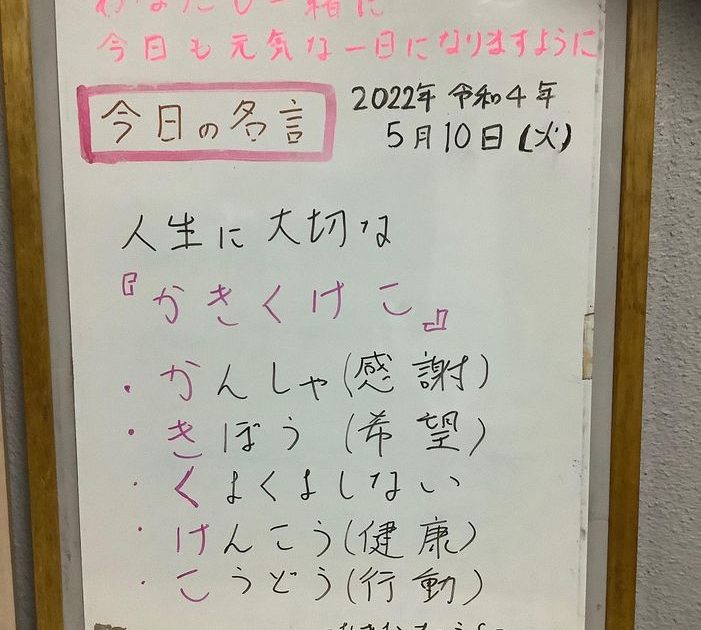 あなたも一緒に
今日も元気な一日になりますように
今日の名言
2022年 令和4年
5月10日(火)
人生に大切な
『かきくけこ』
・かんしゃ(感謝)
・きぼう(希望)
・くよくよしない
・けんこう(健康)
・こうどう(行動)